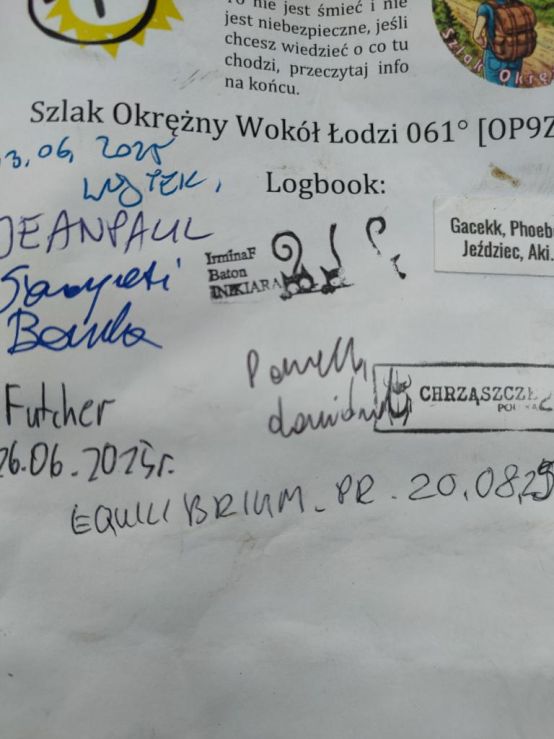 To nie jest śmieć i nie
jest niebezpieczne, jeśli
chcesz wiedzieć o co tu
chodzi, przeczytaj info
na końcu.
Szlak Okrę
Szlak Okrężny Wokół Łodzi 061° [OP9Z
3.06, 2025
WOJTEK,
Logbook:
JEANPAUL
Gacekk, Phoeb
Jeździec, Aki.
IrminaF
Baton
INKIARA
Futcher
CHRZĄSZCZ
26.06.2025r.
EQUILIBRIUM_PR. 20.08.25